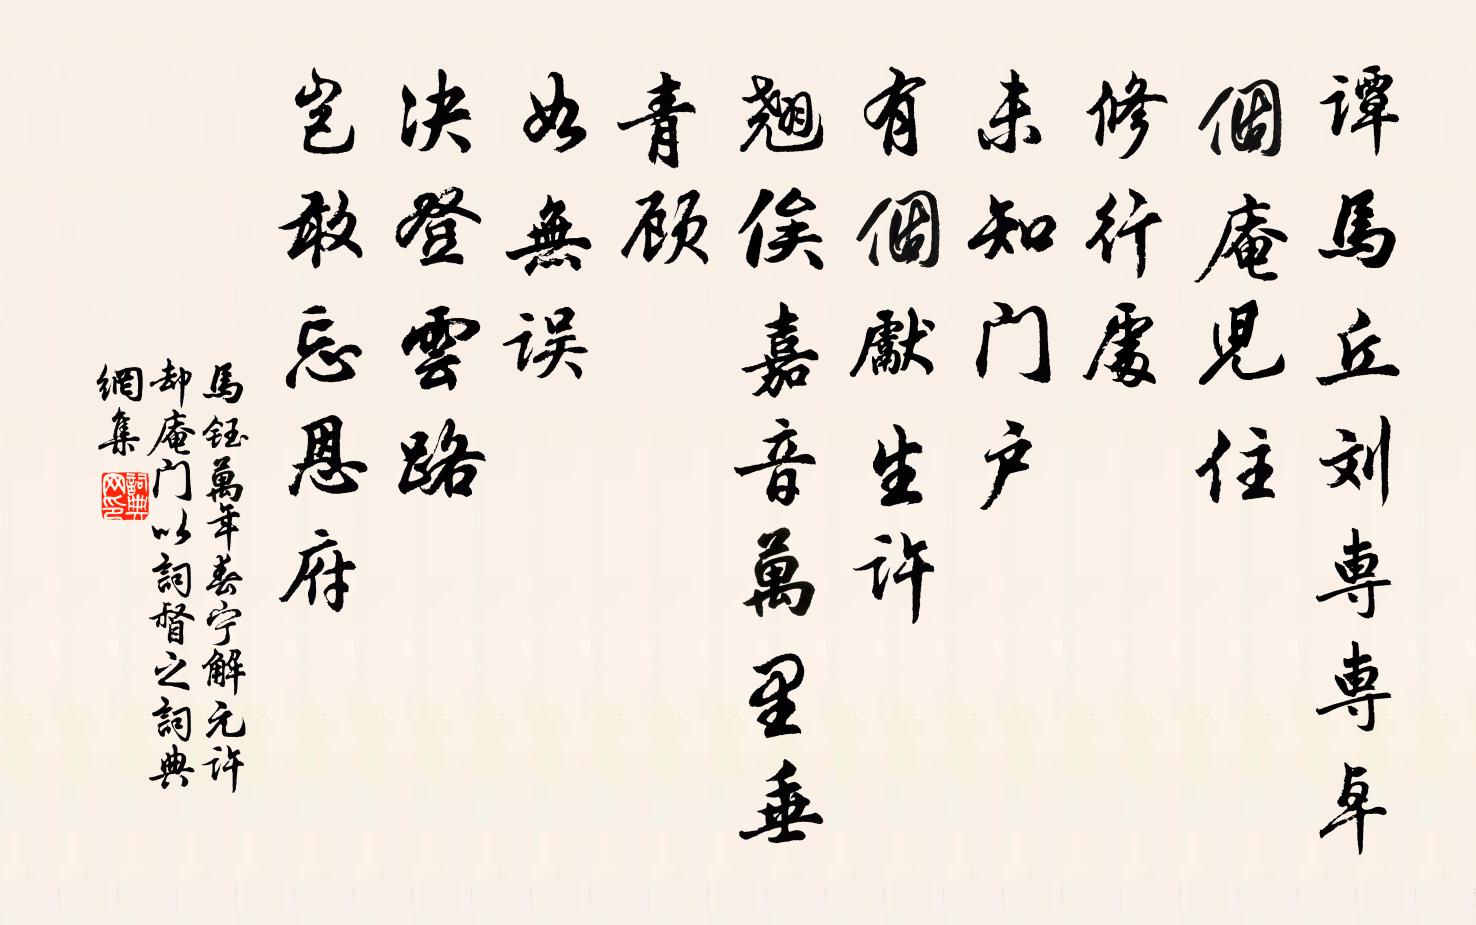 谭馬丘刘専専卓
個庵児住
修行處
未知门户
有個獻生许
翘俟嘉音萬里垂
青顾
如無误
决登雲路
岂敢忘恩府
馬鈺萬年春宁解元许
却庵门以詞督之詞典
網集
詞典网印